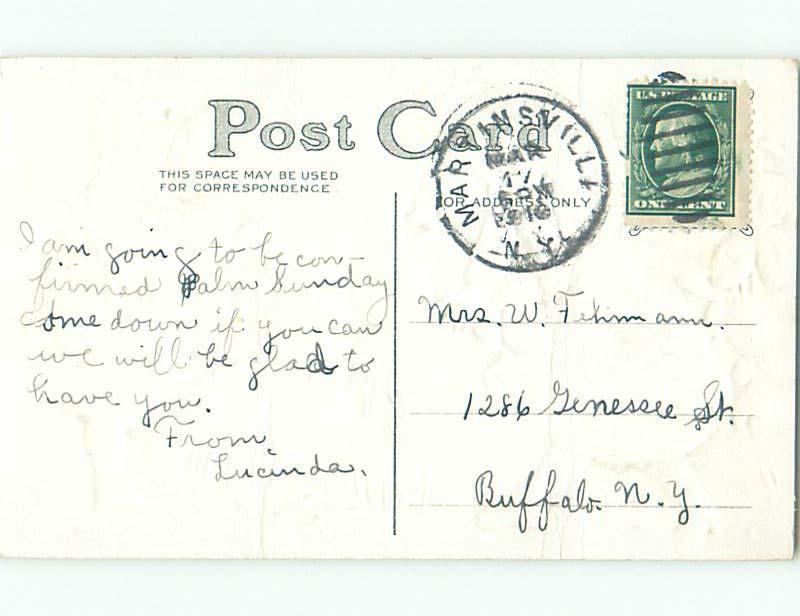 Post Card
THIS SPACE MAY BE USED
FOR CORRESPONDENCE
FOR ADDRESS ONLY
MARTINSVILLE
MAR
17
PM
1910
N.Y.
U.S. POSTAGE
ONE CENT
I am going to be con-
firmed Palm Sunday
come down if you can
we will be glad to
have you.
From
Lucinda.
Mrs. W. Fehrmann.
1286 Genessee St.
Buffalo. N.Y.